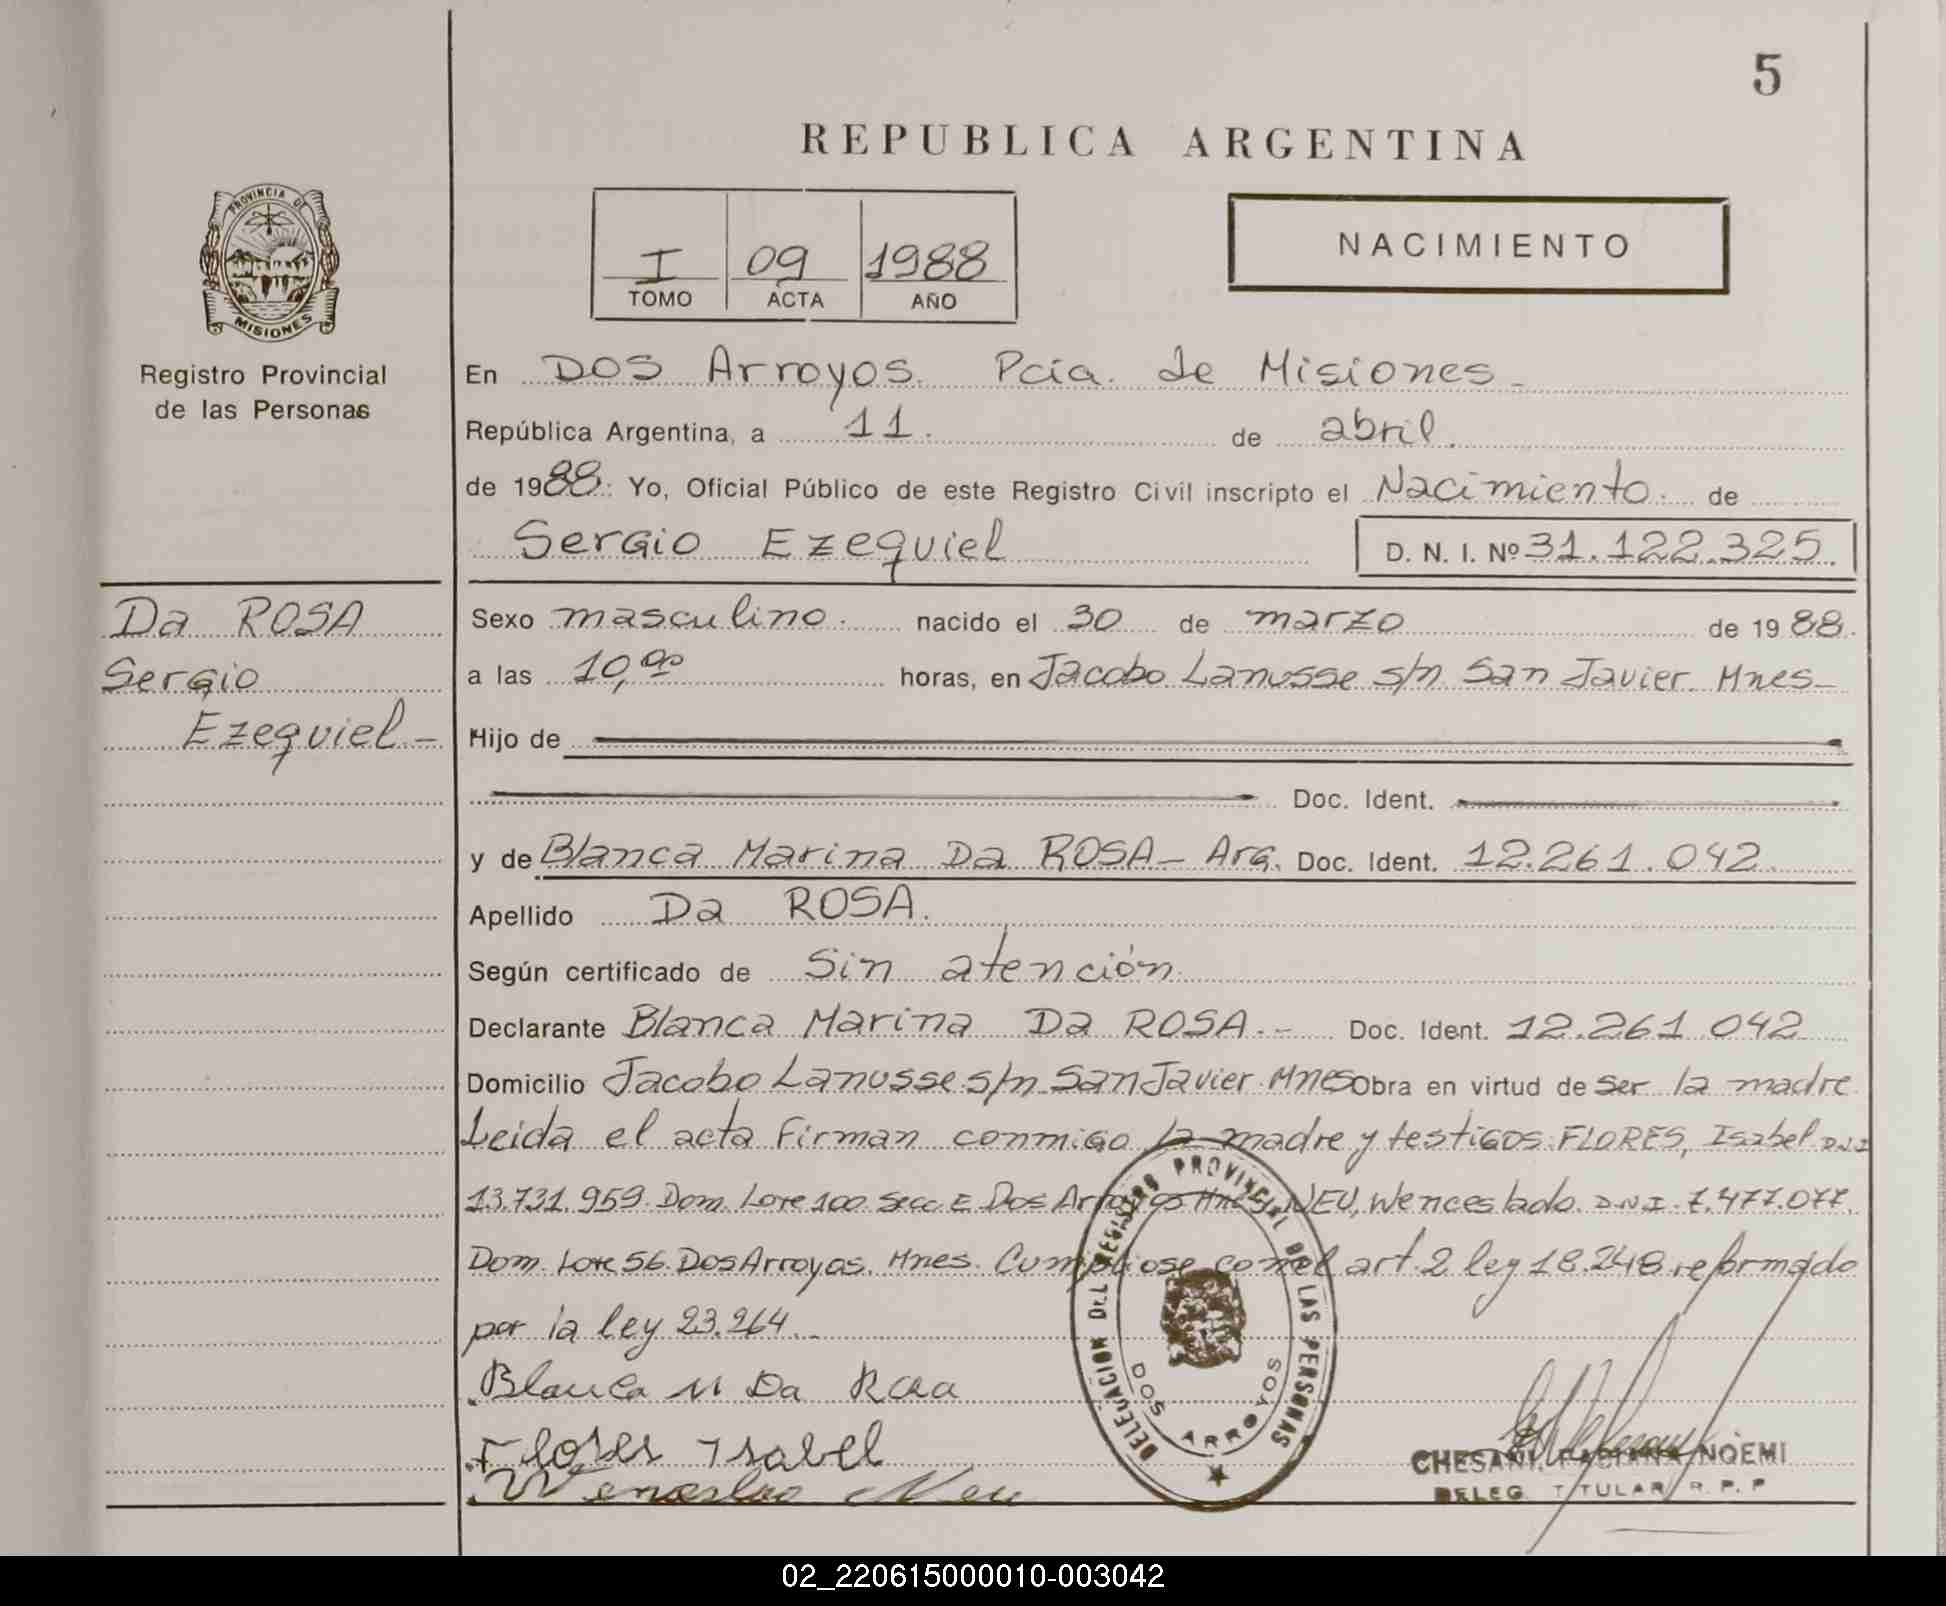 5
REPUBLICA ARGENTINA
PROVINCIA DE
MISIONES
Registro Provincial
de las Personas
I 09 1988
TOMO ACTA AÑO
NACIMIENTO
En DOS Arroyos. Pcia. de Misiones-
República Argentina, a 11. de abril.
de 1988: Yo, Oficial Público de este Registro Civil inscripto el Nacimiento. de
Sergio Ezequiel D. N. I. Nº 31.122.325.
Da ROSA
Sergio
Ezequiel-
Sexo masculino. nacido el 30 de marzo de 1988.
a las 10,00 horas, en Jacobo Lanusse s/n San Javier Mnes-
Hijo de
Doc. Ident.
y de Blanca Marina Da ROSA- Arg. Doc. Ident. 12.261.042.
Apellido Da ROSA.
Según certificado de Sin atención.
Declarante Blanca Marina Da ROSA.- Doc. Ident. 12.261.042
Domicilio Jacobo Lanusse s/n San Javier Mnes Obra en virtud de ser la madre
Leida el acta firman conmigo la madre y testigos: FLORES, Isabel D.N.I
13.731.959. Dom. Lote 100 Secc E Dos Arroyos Mnes, NEU, Wenceslado. D.N.I. 7.477.077.
Dom. Lote 56. Dos Arroyos. Mnes. Cumpliose con el art. 2 ley 18.248 reformado
por la ley 23.264.-
Blanca M Da Rosa
Flores Isabel
Neu
DELEGACION DEL REGISTRO PROVINCIAL DE LAS PERSONAS
DOS ARROYOS
CHESANI, FABIANA NOEMI
DELEG. TITULAR R. P. P
02_220615000010-003042